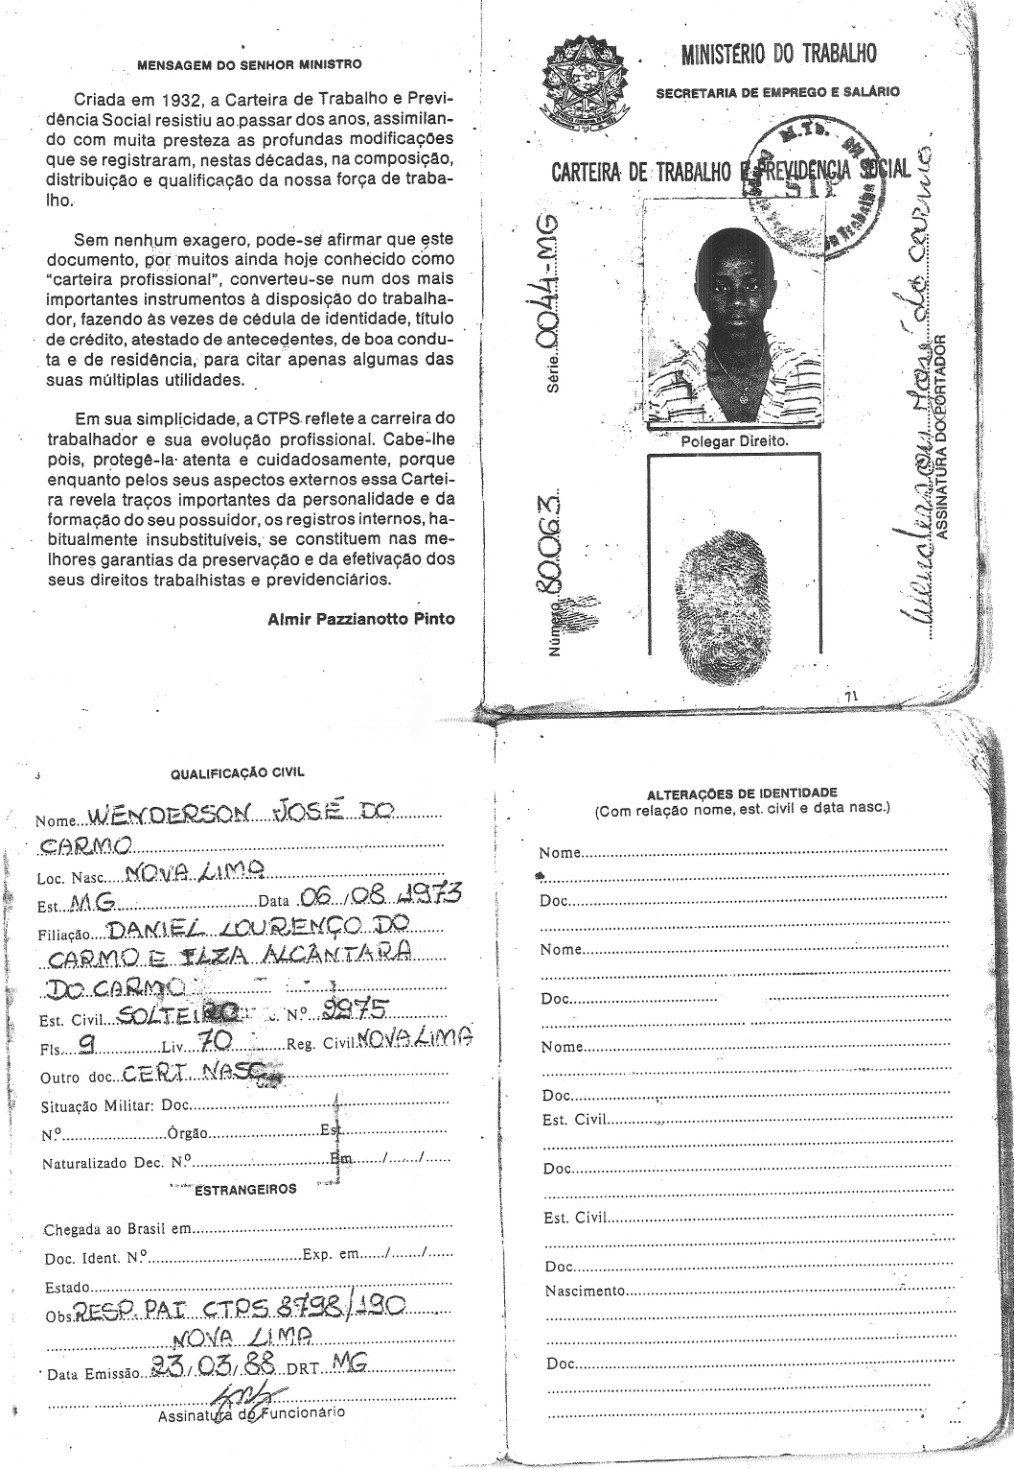 MENSAGEM DO SENHOR MINISTRO
Criada em 1932, a Carteira de Trabalho e Previ-
dência Social resistiu ao passar dos anos, assimilan-
do com muita presteza as profundas modificações
que se registraram, nestas décadas, na composição,
distribuição e qualificação da nossa força de traba-
lho.
Sem nenhum exagero, pode-se afirmar que este
documento, por muitos ainda hoje conhecido como
“carteira profissional”, converteu-se num dos mais
importantes instrumentos à disposição do trabalha-
dor, fazendo às vezes de cédula de identidade, título
de crédito, atestado de antecedentes, de boa condu-
ta e de residência, para citar apenas algumas das
suas múltiplas utilidades.
Em sua simplicidade, a CTPS reflete a carreira do
trabalhador e sua evolução profissional. Cabe-lhe
pois, protegê-la atenta e cuidadosamente, porque
enquanto pelos seus aspectos externos essa Cartei-
ra revela traços importantes da personalidade e da
formação do seu possuidor, os registros internos, ha-
bitualmente insubstituíveis, se constituem nas me-
lhores garantias da preservação e da efetivação dos
seus direitos trabalhistas e previdenciários.
Almir Pazzianotto Pinto
MINISTÉRIO DO TRABALHO
SECRETARIA DE EMPREGO E SALÁRIO
CARTEIRA DE TRABALHO E PREVIDÊNCIA SOCIAL
M.Tb.
STP
Trabalho
Série 0044-MG
Número 80063
Polegar Direito.
Wenderson José do Carmo
ASSINATURA DO PORTADOR
71
QUALIFICAÇÃO CIVIL
Nome WENDERSON JOSÉ DO
CARMO
Loc. Nasc. NOVA LIMA
Est. MG Data 06/08/1973
Filiação DANIEL LOURENÇO DO
CARMO E ILZA ALCÂNTARA
DO CARMO
Est. Civil SOLTEIRO Nº 9975
Fls. 9 Liv. 70 Reg. Civil NOVA LIMA
Outro doc. CERT. NASC
Situação Militar: Doc.
Nº Órgão Est.
Naturalizado Dec. Nº Em / /
ESTRANGEIROS
Chegada ao Brasil em
Doc. Ident. Nº Exp. em / /
Estado
Obs. RESP. PAI CTPS 8798/190
NOVA LIMA
Data Emissão 23/03/88 DRT MG
Assinatura do Funcionário
ALTERAÇÕES DE IDENTIDADE
(Com relação nome, est. civil e data nasc.)
Nome
Doc.
Nome
Doc.
Nome
Doc.
Est. Civil
Doc.
Est. Civil
Doc.
Nascimento
Doc.